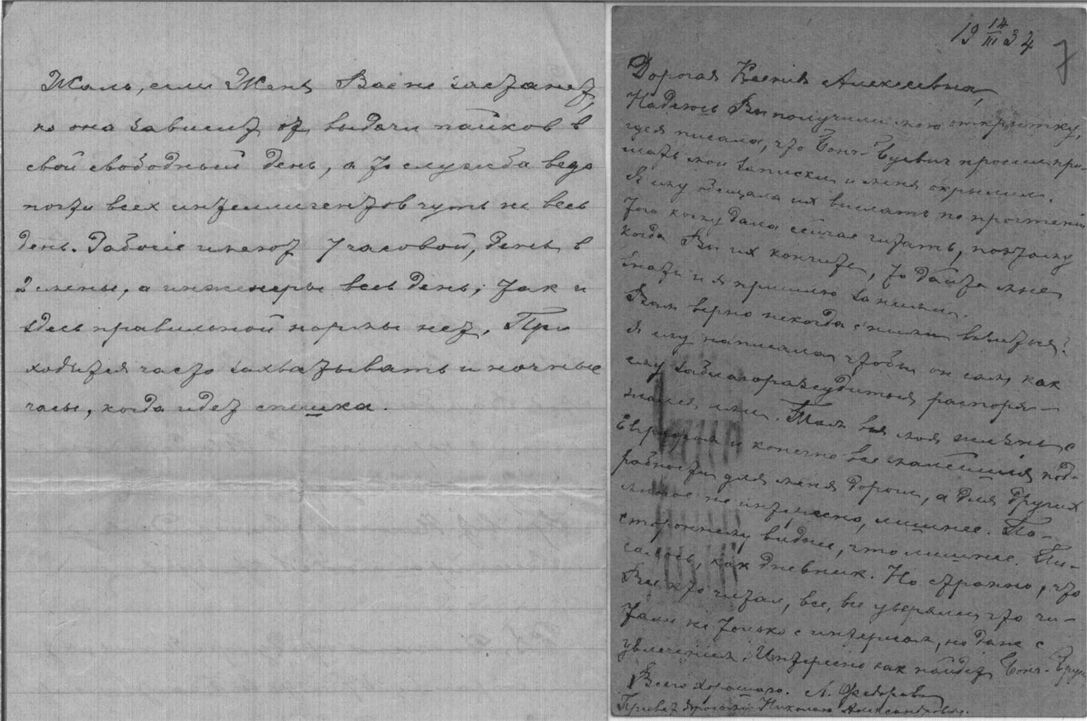 Жаль, если Женя Вас не застанет,
но она зависит от выдачи пайков в
свой свободный день, а то служба ведь
почти всех интеллигентов чуть не весь
день. Рабочие имеют 7 часовой день в
2 смены, а инженеры весь день; так и
здесь правильной нормы нет. При
ходится часто захватывать и ночные
часы, когда идет спешка.
19 14/III 34
7
Дорогая Ксения Алексеевна,
Надеюсь Вы получили мою открытку,
где я писала, что Бонч-Бруевич просил при-
слать мои записки и меня окрылил.
Я ему обещала их выслать по прочтении
того кому дала сейчас читать, поэтому
когда Вы их кончите, то дайте мне
знать и я пришлю за ними.
Вам верно некогда с ними
Я ему написала чтобы он сам как
ему заблагорассудится, распоря-
жался ими. Там вся моя жизнь с
и конечно все малейшия под-
робности для меня дороги, а для других
может не интересно, лишнее. По-
стороннему виднее, что лишнее. Пи-
салось, как дневник. Но странно, что
Все кто читал, все, все уверяли что чи-
тали не только с интересом, но даже с
увлечением. Интересно как найдет Бонч-Бруев
Всего хорошего. А. Федорова
Привет дорогому Николаю Александровичу.